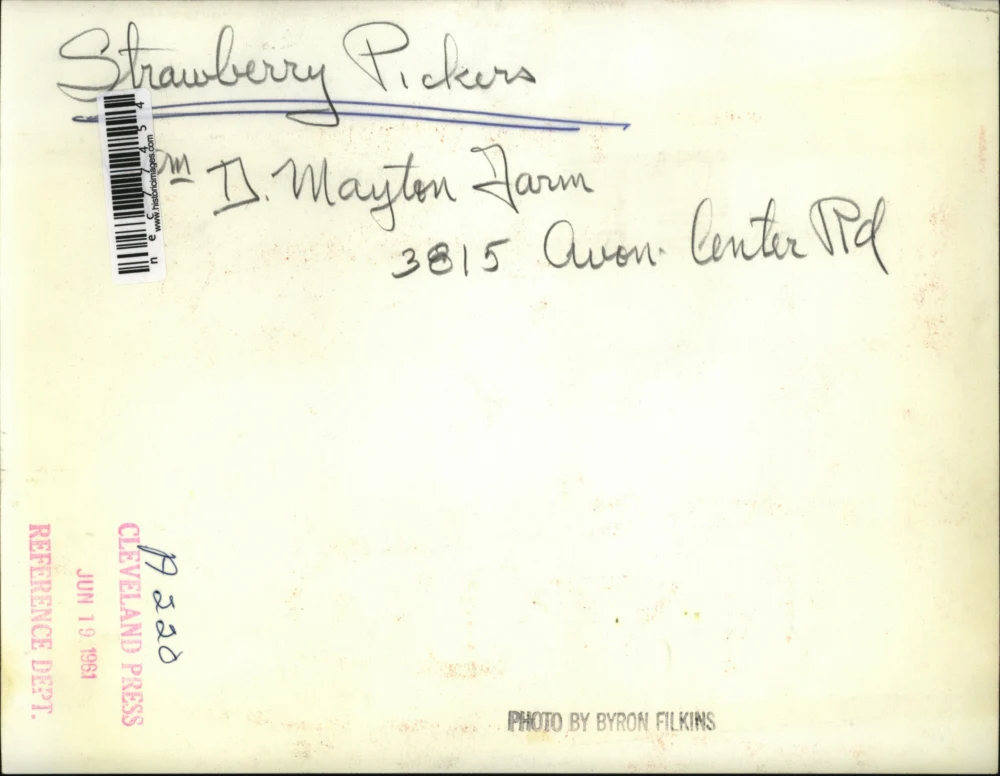 Strawberry Pickers
m D. Mayton Farm
3815 Avon Center Rd
www.historicimages.com
CLEVELAND PRESS
JUN 19 1961
REFERENCE DEPT.
A 220
PHOTO BY BYRON FILKINS